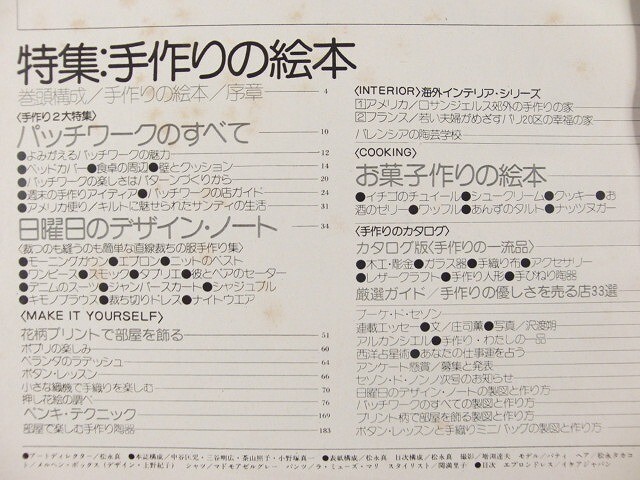 特集:手作りの絵本
巻頭構成／手作りの絵本／序章 4
〈手作り2大特集〉
パッチワークのすべて 10
●よみがえるパッチワークの魅力 12
●ベッドカバー●食卓の周辺●壁とクッション 14
●パッチワークの楽しさはパターンづくりから 20
●週末の手作りアイディア●パッチワークの店ガイド 24
●アメリカ便り／キルトに魅せられたサンディの生活 31
日曜日のデザイン・ノート 34
〈裁つのも縫うのも簡単な直線裁ちの服手作り集〉
●モーニングガウン●エプロン●ニットのベスト
●ワンピース●スモック●タブリエ●彼とペアのセーター
●デニムのスーツ●ジャンパースカート●シャジュブル
●キモノブラウス●裁ち切りドレス●ナイトウエア
〈MAKE IT YOURSELF〉
花柄プリントで部屋を飾る 51
ポプリの楽しみ 60
ベランダのラデッシュ 64
ボタン・レッスン 66
小さな織機で手織りを楽しむ 70
押し花絵の調べ 76
ペンキ・テクニック 169
部屋で楽しむ手作り陶器 183
〈INTERIOR〉海外インテリア・シリーズ
1アメリカ／ロサンジェルス郊外の手作りの家
2フランス／若い夫婦がめざすパリ20区の幸福の家
バレンシアの陶芸学校
〈COOKING〉
お菓子作りの絵本
●イチゴのチュイール●シュークリーム●クッキー●お
酒のゼリー●ワッフル●あんずのタルト●ナッツヌガー
〈手作りのカタログ〉
カタログ版〈手作りの一流品〉
●木工・彫金●ガラス器●手織り布●アクセサリー
●レザークラフト●手作り人形●手びねり陶器
厳選ガイド／手作りの優しさを売る店33選
ブーケ・ド・セゾン
連載エッセー●文／庄司薫●写真／沢渡朔
アルカンシエル●手作り・わたしの一品
西洋占星術●あなたの仕事運を占う
アンケート懸賞／募集と発表
セゾン・ド・ノンノ次号のお知らせ
日曜日のデザイン・ノートの製図と作り方
パッチワークのすべての製図と作り方
プリント柄で部屋を飾る製図と作り方
ボタン・レッスンと手織りミニバッグの製図と作り方
●アートディレクター／松永真 ●本誌構成／中谷匡児・三谷明広・茶山照子・小野塚真一 ●表紙構成／松永真 目次構成／松永真 撮影／増渕達夫 モデル／パティ ヘア／松永タカコ
／メルヘン・ボックス(デザイン・上野紀子) シャツ／マドモアゼルグレー パンツ／ラ・ミューズ・マリ スタイリスト／関満里子 ●目次 エプロンドレス／イケアジャパン